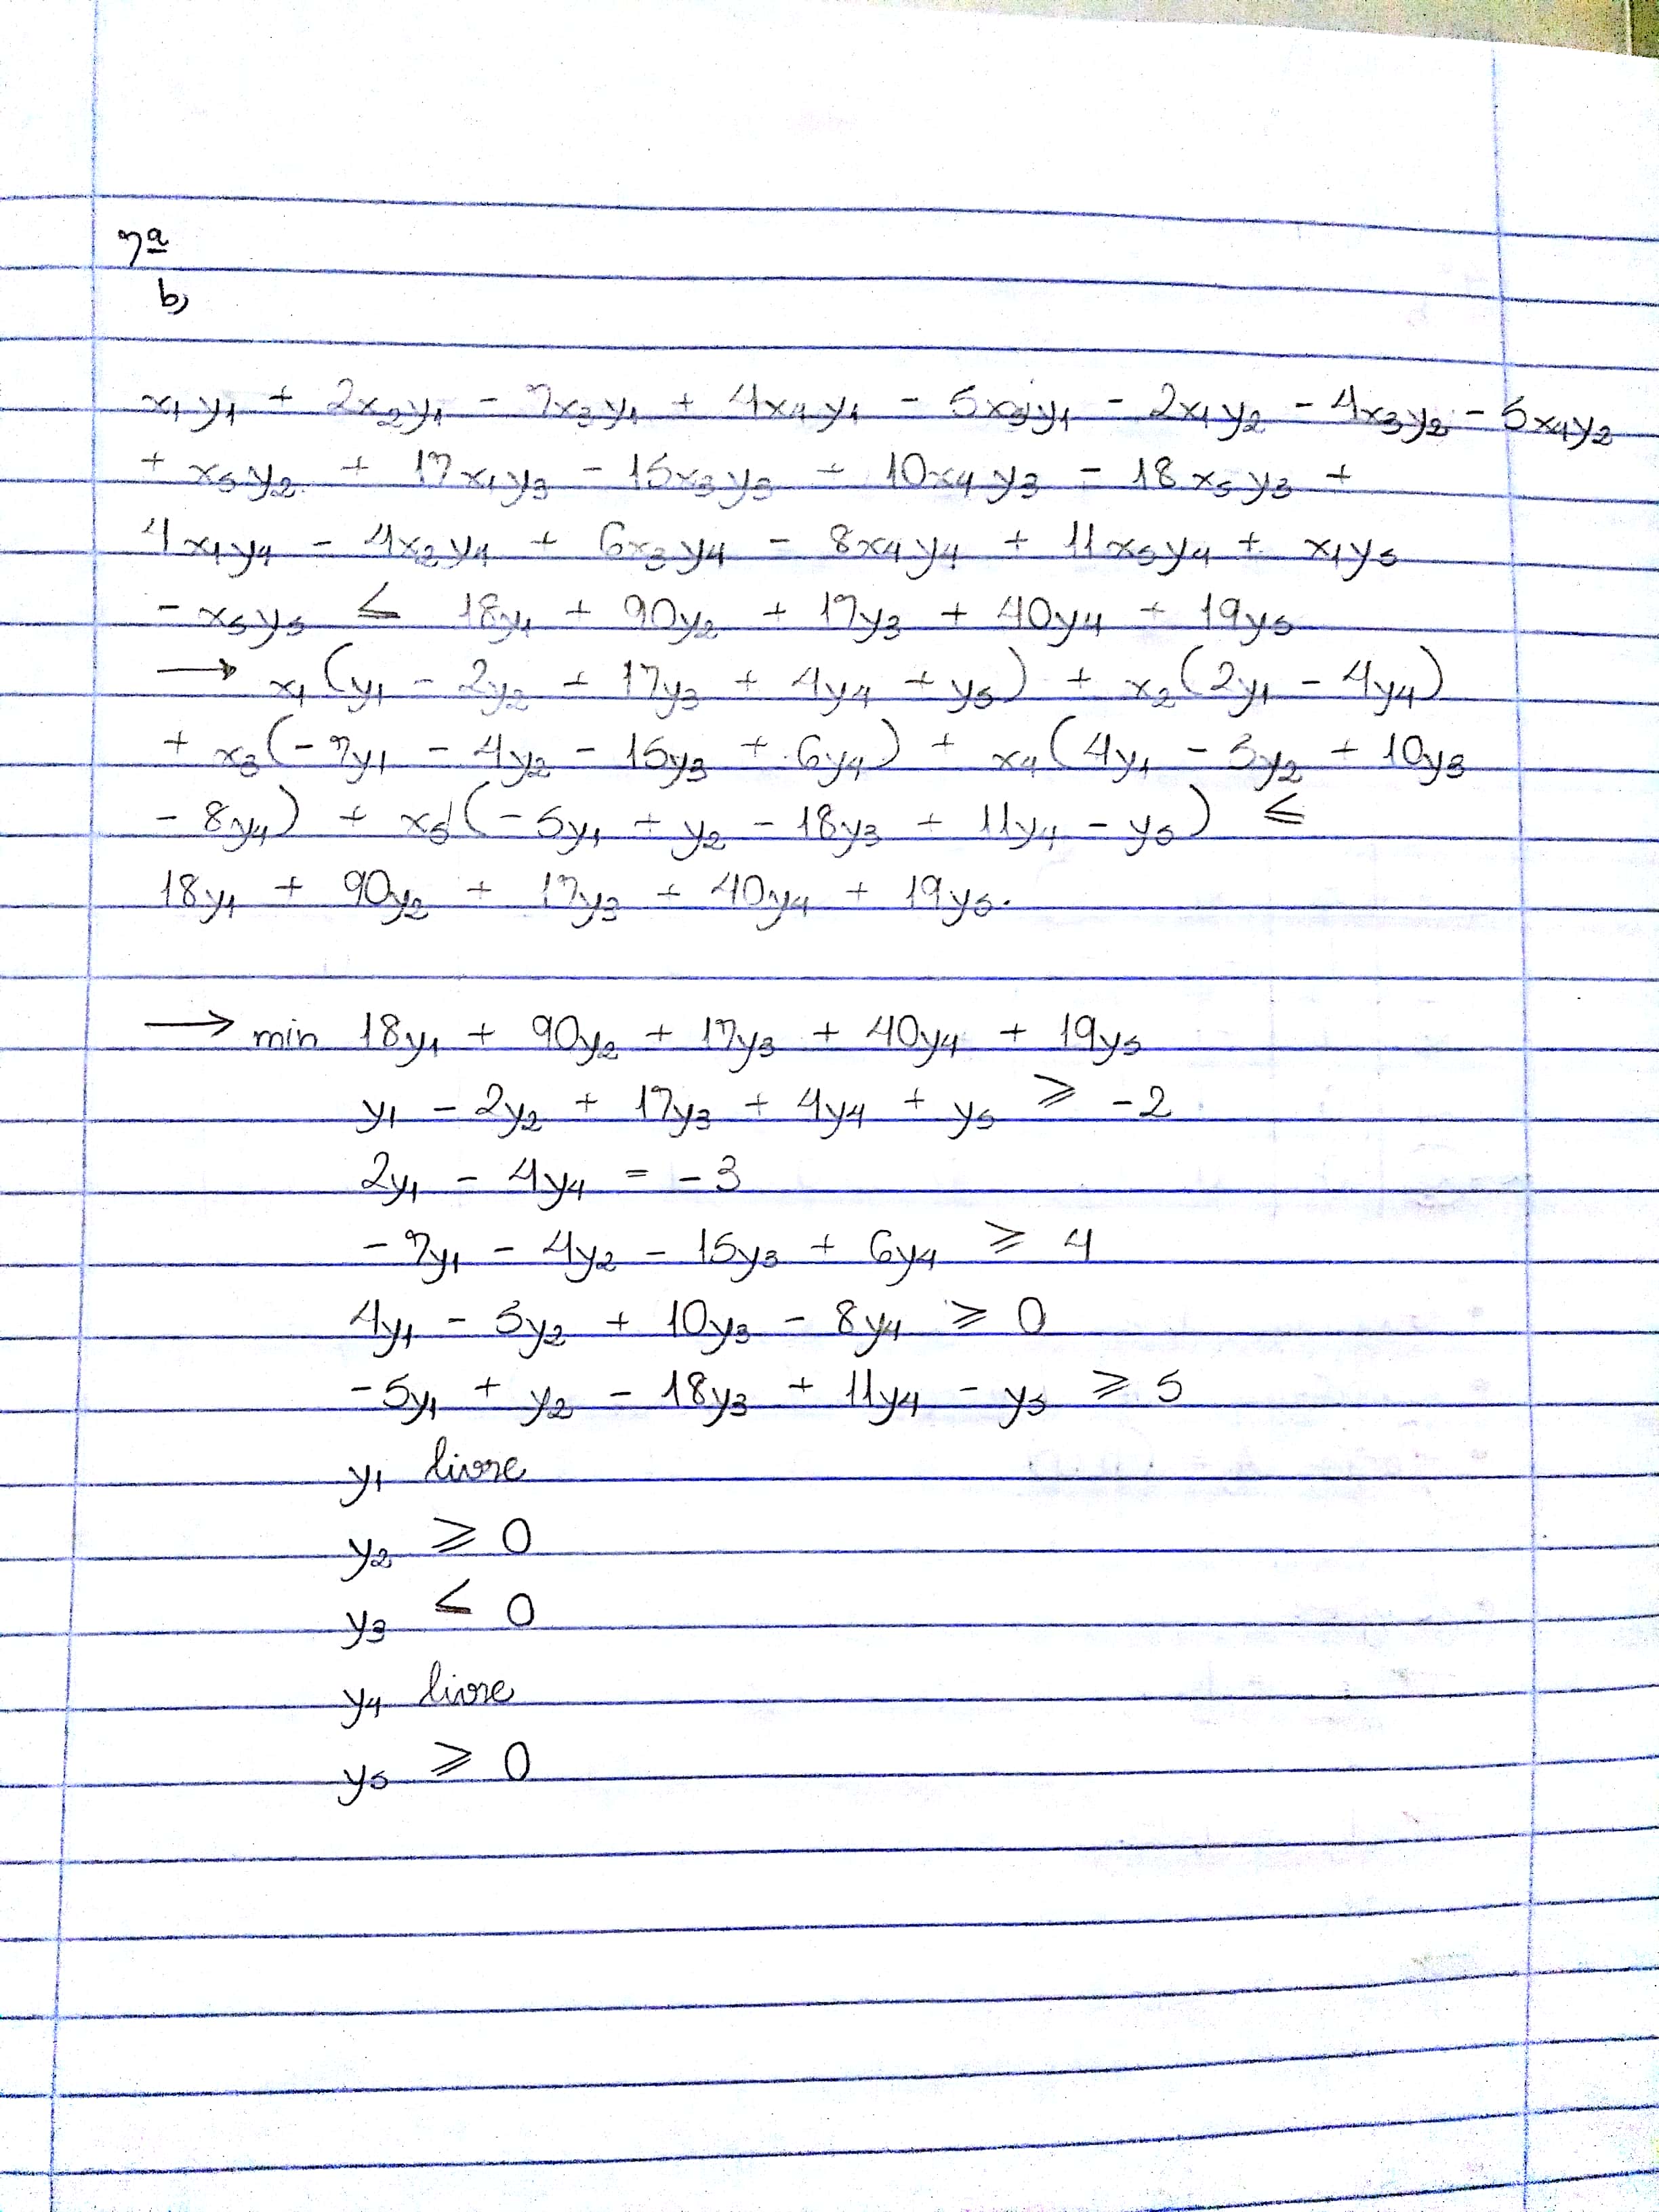 7ª
b)
x₁y₁ + 2x₂y₁ - 7x₃y₁ + 4x₄y₁ - 5x₅y₁ - 2x₁y₂ - 4x₃y₂ - 5x₄y₂
+ x₅y₂ + 17x₁y₃ - 15x₃y₃ + 10x₄y₃ - 18x₅y₃ +
4x₁y₄ - 4x₂y₄ + 6x₃y₄ - 8x₄y₄ + 11x₅y₄ + x₁y₅
- x₅y₅ ≤ 18y₁ + 90y₂ + 17y₃ + 40y₄ + 19y₅
→ x₁(y₁ - 2y₂ + 17y₃ + 4y₄ + y₅) + x₂(2y₁ - 4y₄)
+ x₃(-7y₁ - 4y₂ - 15y₃ + 6y₄) + x₄(4y₁ - 5y₂ + 10y₃
- 8y₄) + x₅(-5y₁ + y₂ - 18y₃ + 11y₄ - y₅) ≤
18y₁ + 90y₂ + 17y₃ + 40y₄ + 19y₅.
→ min 18y₁ + 90y₂ + 17y₃ + 40y₄ + 19y₅
y₁ - 2y₂ + 17y₃ + 4y₄ + y₅ ≥ -2
2y₁ - 4y₄ = -3
-7y₁ - 4y₂ - 15y₃ + 6y₄ ≥ 4
4y₁ - 5y₂ + 10y₃ - 8y₄ ≥ 0
-5y₁ + y₂ - 18y₃ + 11y₄ - y₅ ≥ 5
y₁ livre
y₂ ≥ 0
y₃ ≤ 0
y₄ livre
y₅ ≥ 0